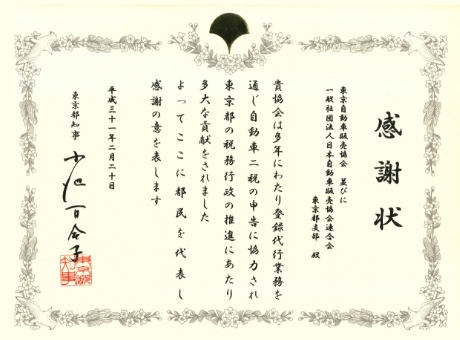 感謝状
東京自動車販売協会 並びに
一般社団法人日本自動車販売協会連合会
東京都支部 殿
貴協会は多年にわたり登録代行業務を
通じ自動車二税の申告に協力され
東京都の税務行政の推進にあたり
多大な貢献をされました
よってここに都民を代表し
感謝の意を表します
平成三十一年二月二十日
東京都知事 小池百合子
東京都知事